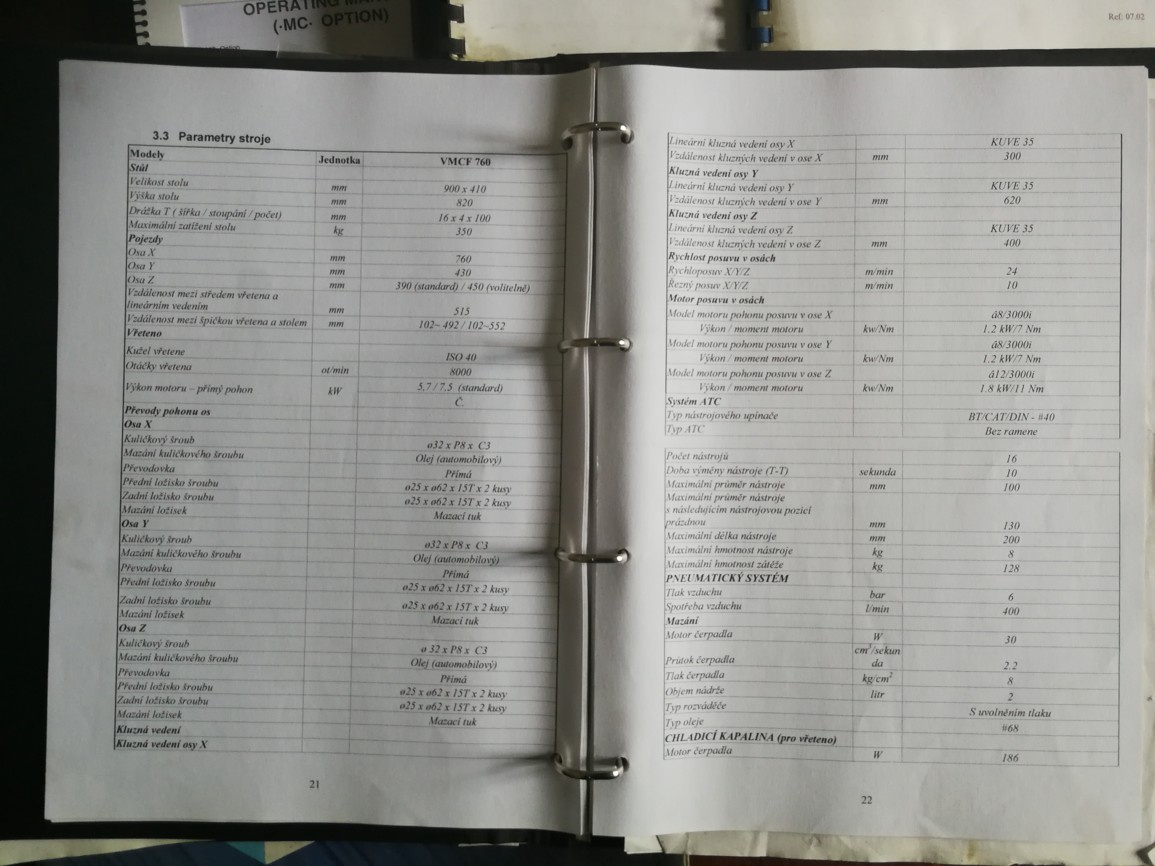 OPERATING MAN
(-MC- OPTION)
Ref: 07.02
3.3 Parametry stroje
Modely Jednotka VMCF 760
Stůl
Velikost stolu mm 900 x 410
Výška stolu mm 820
Drážka T ( šířka / stoupání / počet) mm 16 x 4 x 100
Maximální zatížení stolu kg 350
Pojezdy
Osa X mm 760
Osa Y mm 430
Osa Z mm 390 (standard) / 450 (volitelně)
Vzdálenost mezi středem vřetena a
lineárním vedením mm 515
Vzdálenost mezi špičkou vřetena a stolem mm 102~ 492 / 102~552
Vřeteno
Kužel vřetene ISO 40
Otáčky vřetena ot/min 8000
Výkon motoru – přímý pohon kW 5,7 / 7,5 (standard)
Č.
Převody pohonu os
Osa X
Kuličkový šroub ø32 x P8 x C3
Mazání kuličkového šroubu Olej (automobilový)
Převodovka Přímá
Přední ložisko šroubu ø25 x ø62 x 15T x 2 kusy
Zadní ložisko šroubu ø25 x ø62 x 15T x 2 kusy
Mazání ložisek Mazací tuk
Osa Y
Kuličkový šroub ø32 x P8 x C3
Mazání kuličkového šroubu Olej (automobilový)
Převodovka Přímá
Přední ložisko šroubu ø25 x ø62 x 15T x 2 kusy
Zadní ložisko šroubu ø25 x ø62 x 15T x 2 kusy
Mazání ložisek Mazací tuk
Osa Z
Kuličkový šroub ø 32 x P8 x C3
Mazání kuličkového šroubu Olej (automobilový)
Převodovka Přímá
Přední ložisko šroubu ø25 x ø62 x 15T x 2 kusy
Zadní ložisko šroubu ø25 x ø62 x 15T x 2 kusy
Mazání ložisek Mazací tuk
Kluzná vedení
Kluzná vedení osy X
21
Lineární kluzná vedení osy X KUVE 35
Vzdálenost kluzných vedení v ose X mm 300
Kluzná vedení osy Y
Lineární kluzná vedení osy Y KUVE 35
Vzdálenost kluzných vedení v ose Y mm 620
Kluzná vedení osy Z
Lineární kluzná vedení osy Z KUVE 35
Vzdálenost kluzných vedení v ose Z mm 400
Rychlost posuvu v osách
Rychloposuv X/Y/Z m/min 24
Řezný posuv X/Y/Z m/min 10
Motor posuvu v osách
Model motoru pohonu posuvu v ose X â8/3000i
Výkon / moment motoru kw/Nm 1.2 kW/7 Nm
Model motoru pohonu posuvu v ose Y â8/3000i
Výkon / moment motoru kw/Nm 1.2 kW/7 Nm
Model motoru pohonu posuvu v ose Z â12/3000i
Výkon / moment motoru kw/Nm 1.8 kW/11 Nm
Systém ATC
Typ nástrojového upínače BT/CAT/DIN - #40
Typ ATC Bez ramene
Počet nástrojů 16
Doba výměny nástroje (T-T) sekunda 10
Maximální průměr nástroje mm 100
Maximální průměr nástroje
s následujícím nástrojovou pozicí
prázdnou mm 130
Maximální délka nástroje mm 200
Maximální hmotnost nástroje kg 8
Maximální hmotnost zátěže kg 128
PNEUMATICKÝ SYSTÉM
Tlak vzduchu bar 6
Spotřeba vzduchu l/min 400
Mazání
Motor čerpadla W 30
cm³/sekun
Průtok čerpadla da 2.2
Tlak čerpadla kg/cm² 8
Objem nádrže litr 2
Typ rozváděče S uvolněním tlaku
Typ oleje #68
CHLADICÍ KAPALINA (pro vřeteno)
Motor čerpadla W 186
22